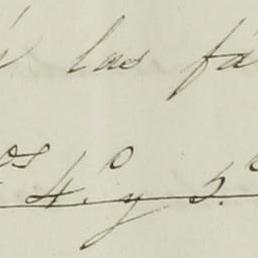 las fá
os 4.º y 5.º